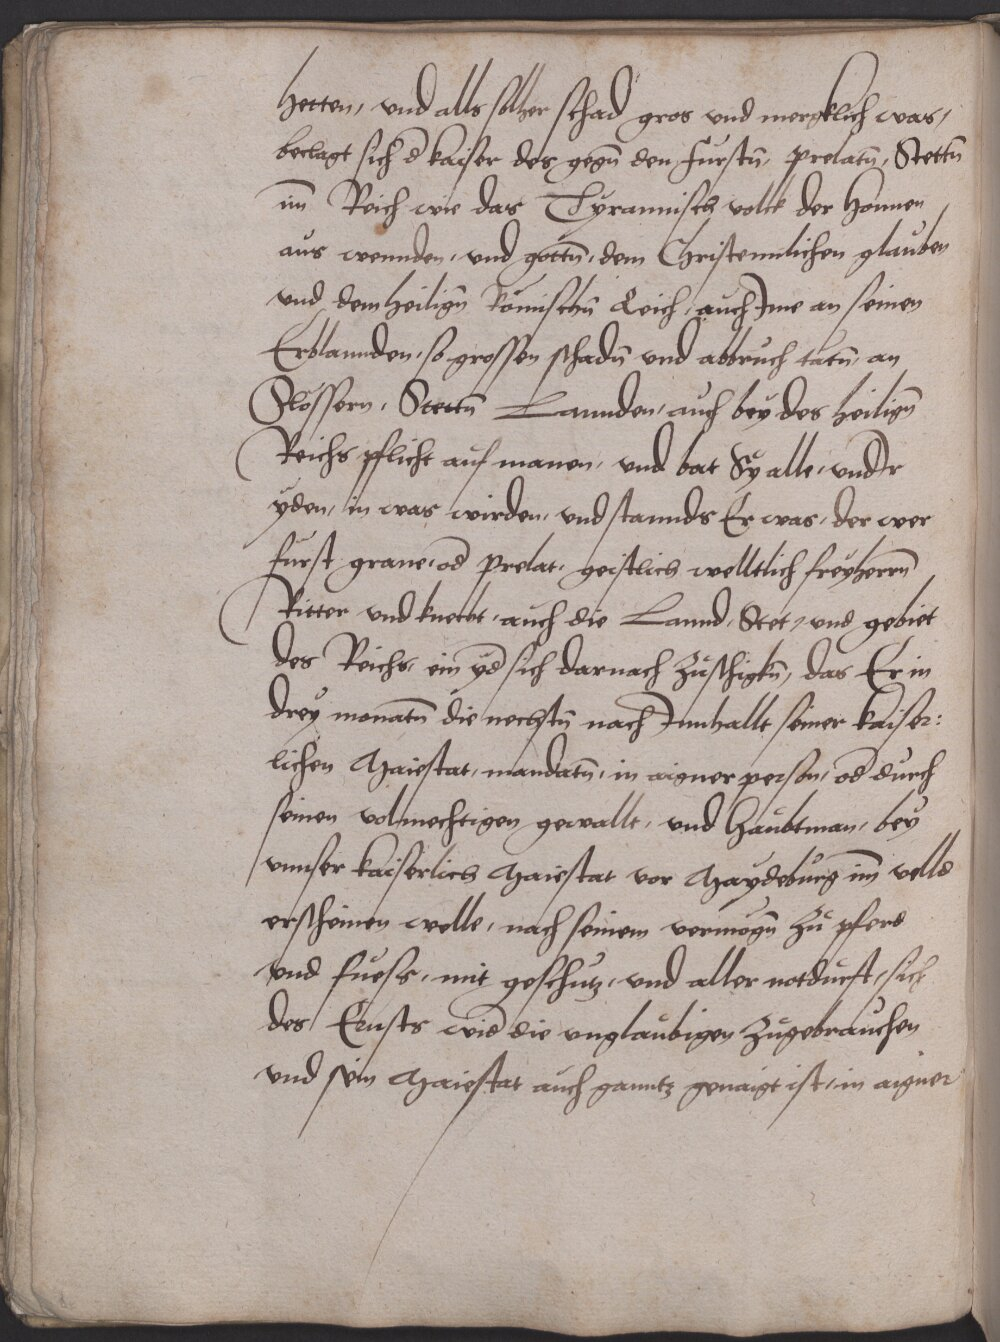 hetten, vnd alls sollher schad gros vnd mergklich was,
beclagt sich d̄ kaiser des gegn̄ den fürstn̄, prelatn̄, Stettn̄
im̄ Reich wie das Tyrannisch volck der Honnen
aus wennden, vnd gottn̄, dem Christennlichen glauben
vnd dem heilign̄ Römischn̄ Reich, auch Ime an seinen
Erblannden, so grossen schadn̄ vnd abbruch tatn̄, an
Slossern, Stettn̄ Lannden, auch bey des heilign̄
Reichs pflicht auf manen, vnd bat Sy alle, vnd Ir
yden, in was wirden, vnd stannds Er was, der wer
fürst graue, od̄ prelat, geistlich welltlich freyherrn̄
Ritter vnd knecht, auch die Lannd, Stet, vnd gebiet
des Reichs, ein yd̄ sich darnach zuschigkn̄, das Er in
drey monatn̄ die nechstn̄ nach Innhallt seiner kaiser:
lichen Maiestat, mandatn̄, in aigner person, od̄ durch
seinen volmechtigen gewallt, vnd haubtman, bey
vnnser kaiserlich Maiestat vor Maydeburg im̄ velld
erscheinen welle, nach seinem vermogn̄ zu pferd
vnd fuess, mit geschutz, vnd aller notdurft, sich
des Ernsts wid̄ die vnglaubigen zugebrauchen
vnd sein Maiestat auch ganntz genaigt ist, in aigner